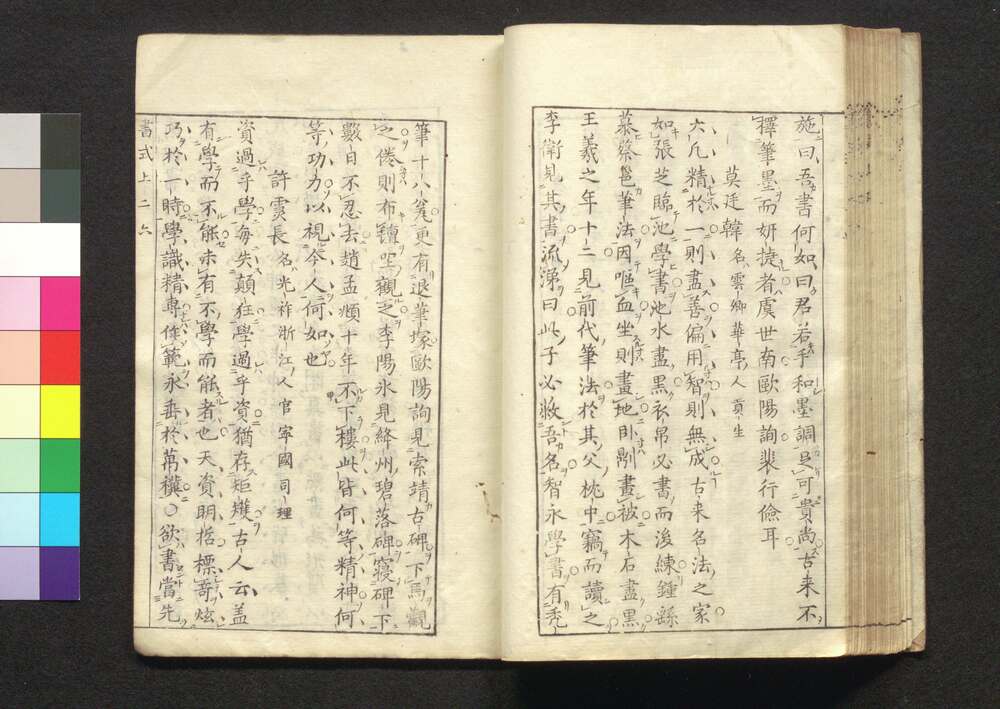 施曰吾書何如曰君若手和墨調是可貴尚古来不
擇筆墨而妍捷者虞世南歐陽詢裴行儉耳
莫廷韓 名雲卿華亭人貢生
大凡精於一則盡善偏用智則無成古来名法之家
如張芝臨池學書池水盡黒衣帛必書而後練鍾繇
慕蔡邕筆法因嘔血坐則畫地臥則畫被木石盡黒
王羲之年十二見前代筆法於其父枕中竊而讀之
李衛見其書流涕曰此子必蔽吾名智永學書有禿
筆十八瓮更有退筆塚歐陽詢見索靖古碑下馬觀
之倦則布氊坐觀之李陽氷見絳州碧落碑寢碑下
數日不忍去趙孟頫十年不下樓此皆何等精神何
等功力以視今人何如也
許霊長 名光祚浙江人官寧國同理
資過乎學每失顛狂學過乎資猶存矩矱古人云盖
有學而不能未有不學而能者也天資明哲標奇炫
巧於一時學識精專作範永垂於萬䙫○欲書當先
書式上二六